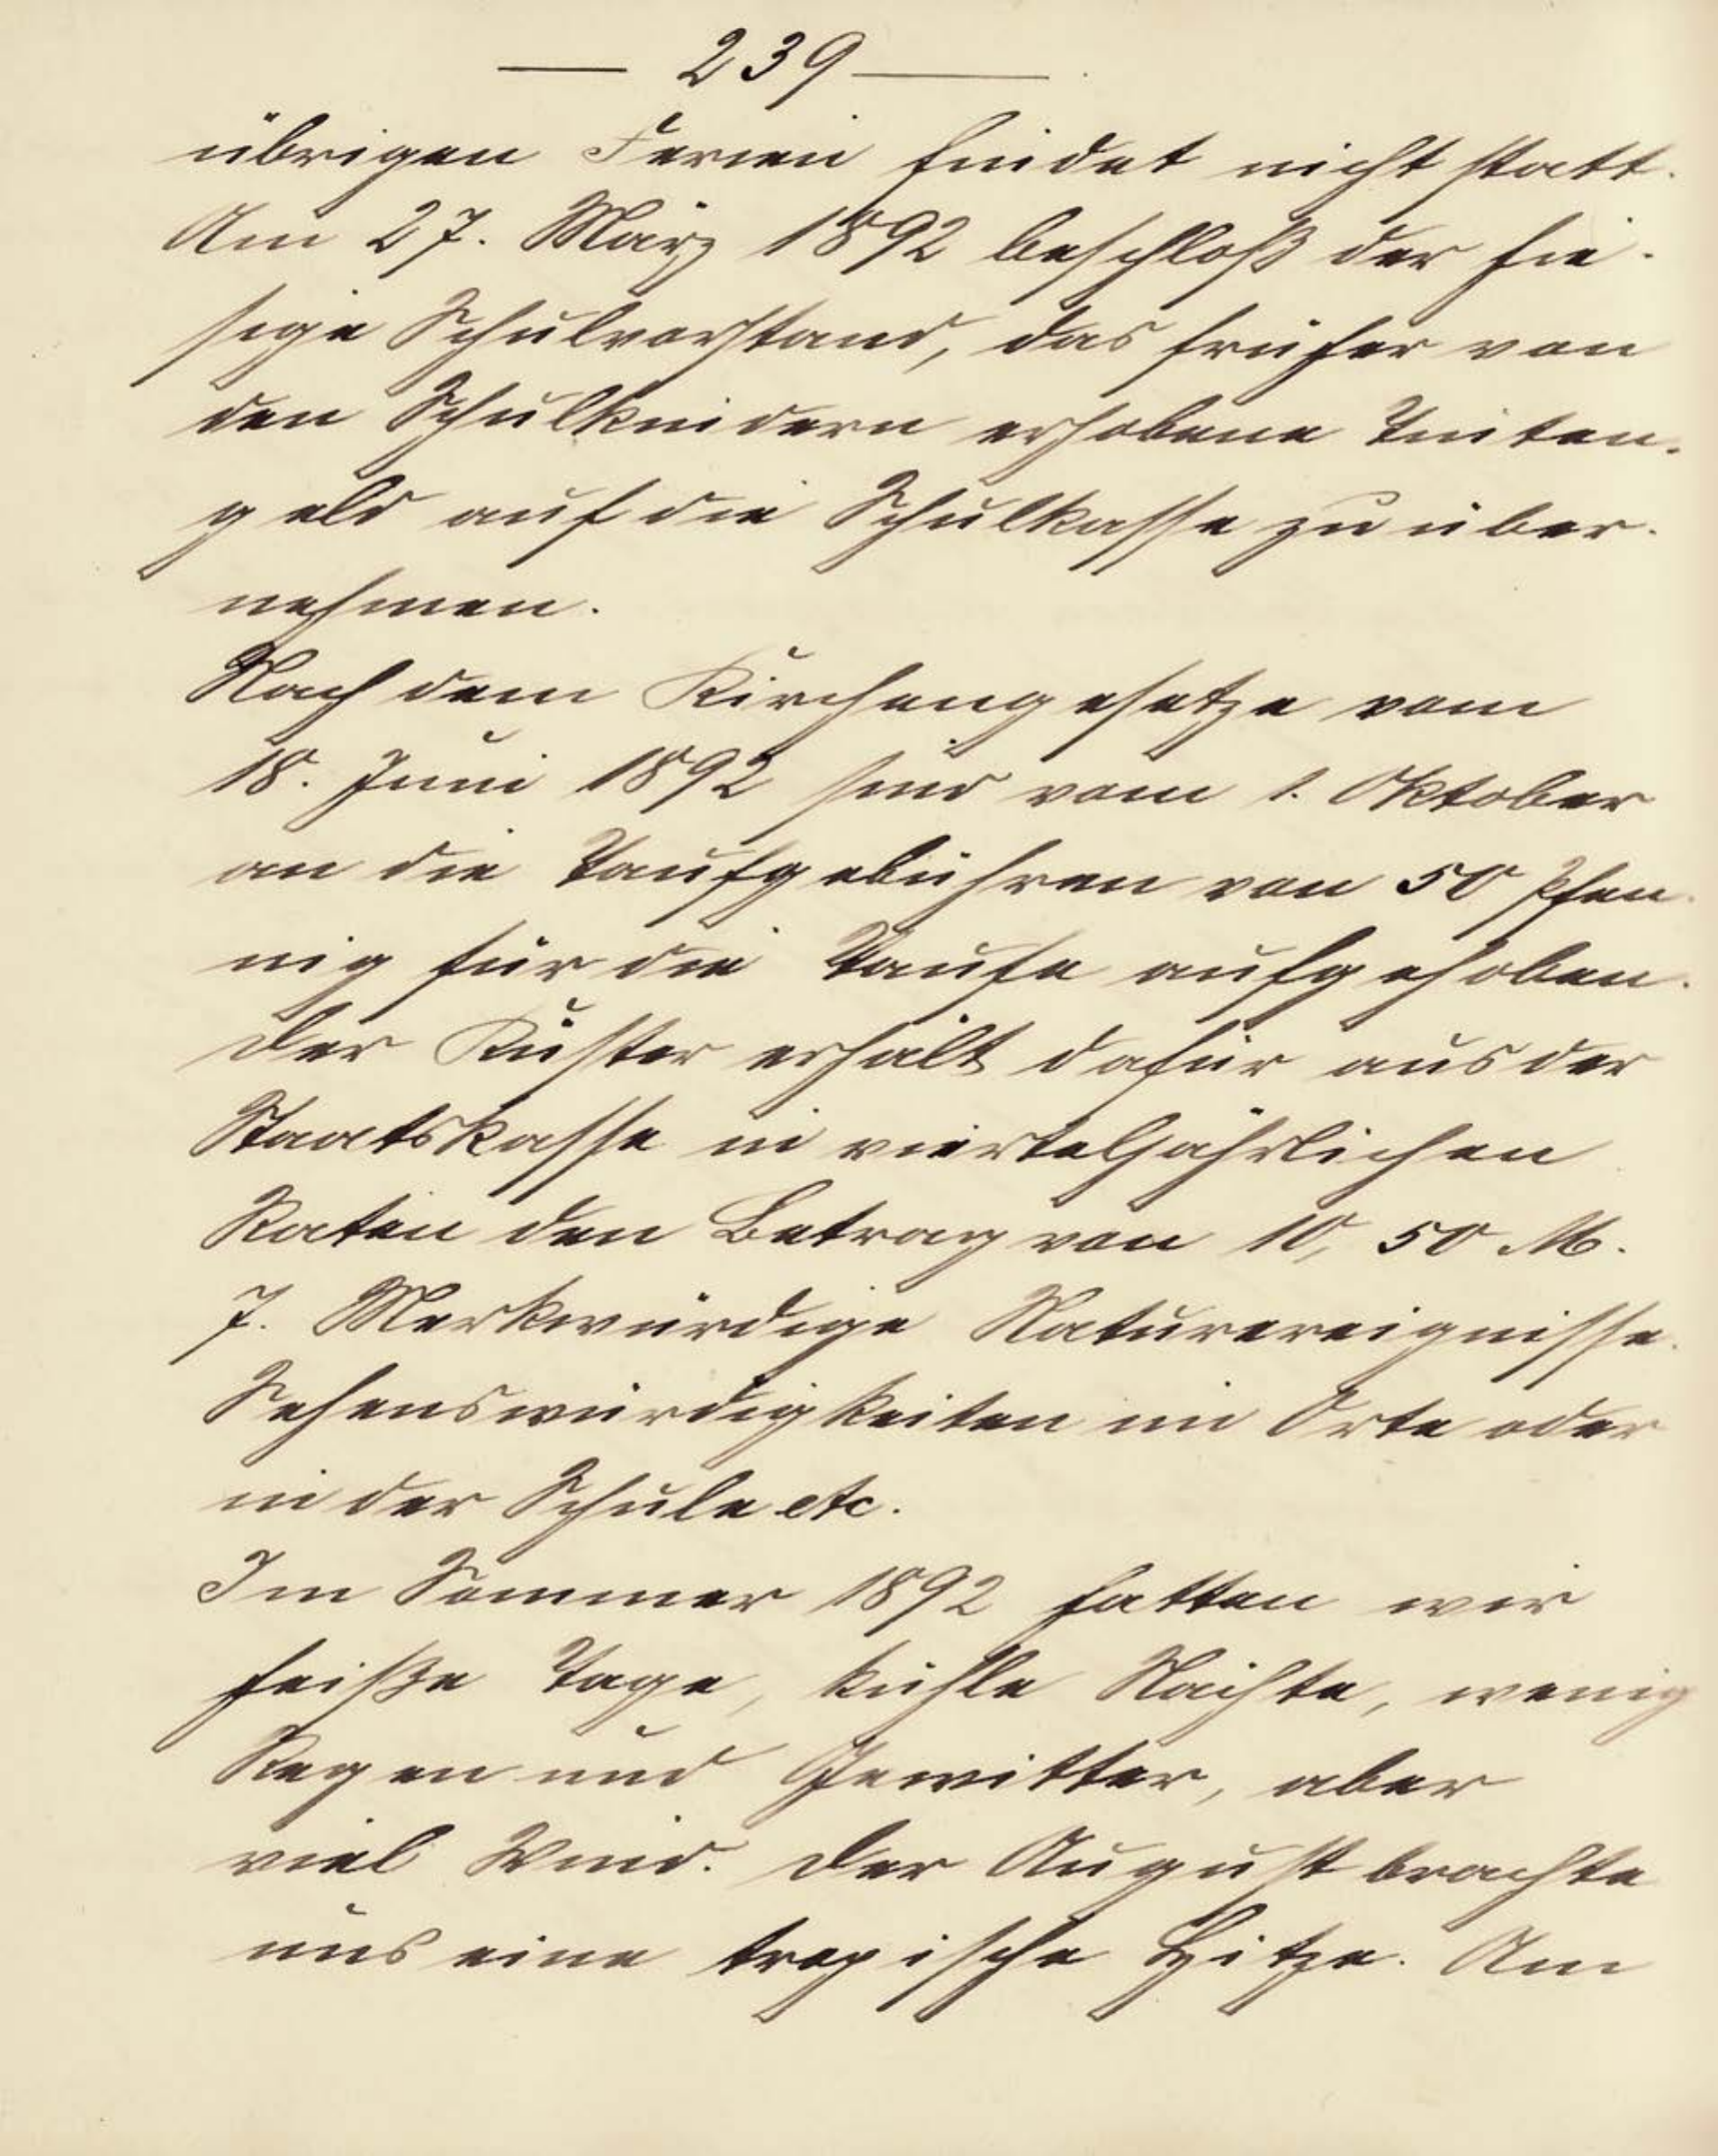 — 239 —
übrigen Ferien findet nicht statt.
Am 27. März 1892 beschloß der hie-
sige Schulvorstand, das früher von
den Schulkindern erhobene Tinten-
geld auf die Schulkasse zu über-
nehmen.
Nach dem Kirchengesetze vom
18. Juni 1892 sind vom 1. Oktober
an die Taufgebühren von 50 Pfen-
nig für die Taufe aufgehoben.
Der Küster erhält dafür aus der
Staatskasse in vierteljährlichen
Raten den Betrag von 10,50 M.
7. Merkwürdige Naturereignisse.
Sehenswürdigkeiten im Orte oder
in der Schule etc.
Im Sommer 1892 hatten wir
heiße Tage, kühle Nächte, wenig
Regen und Gewitter, aber
viel Wind. Der August brachte
uns eine tropische Hitze. Am